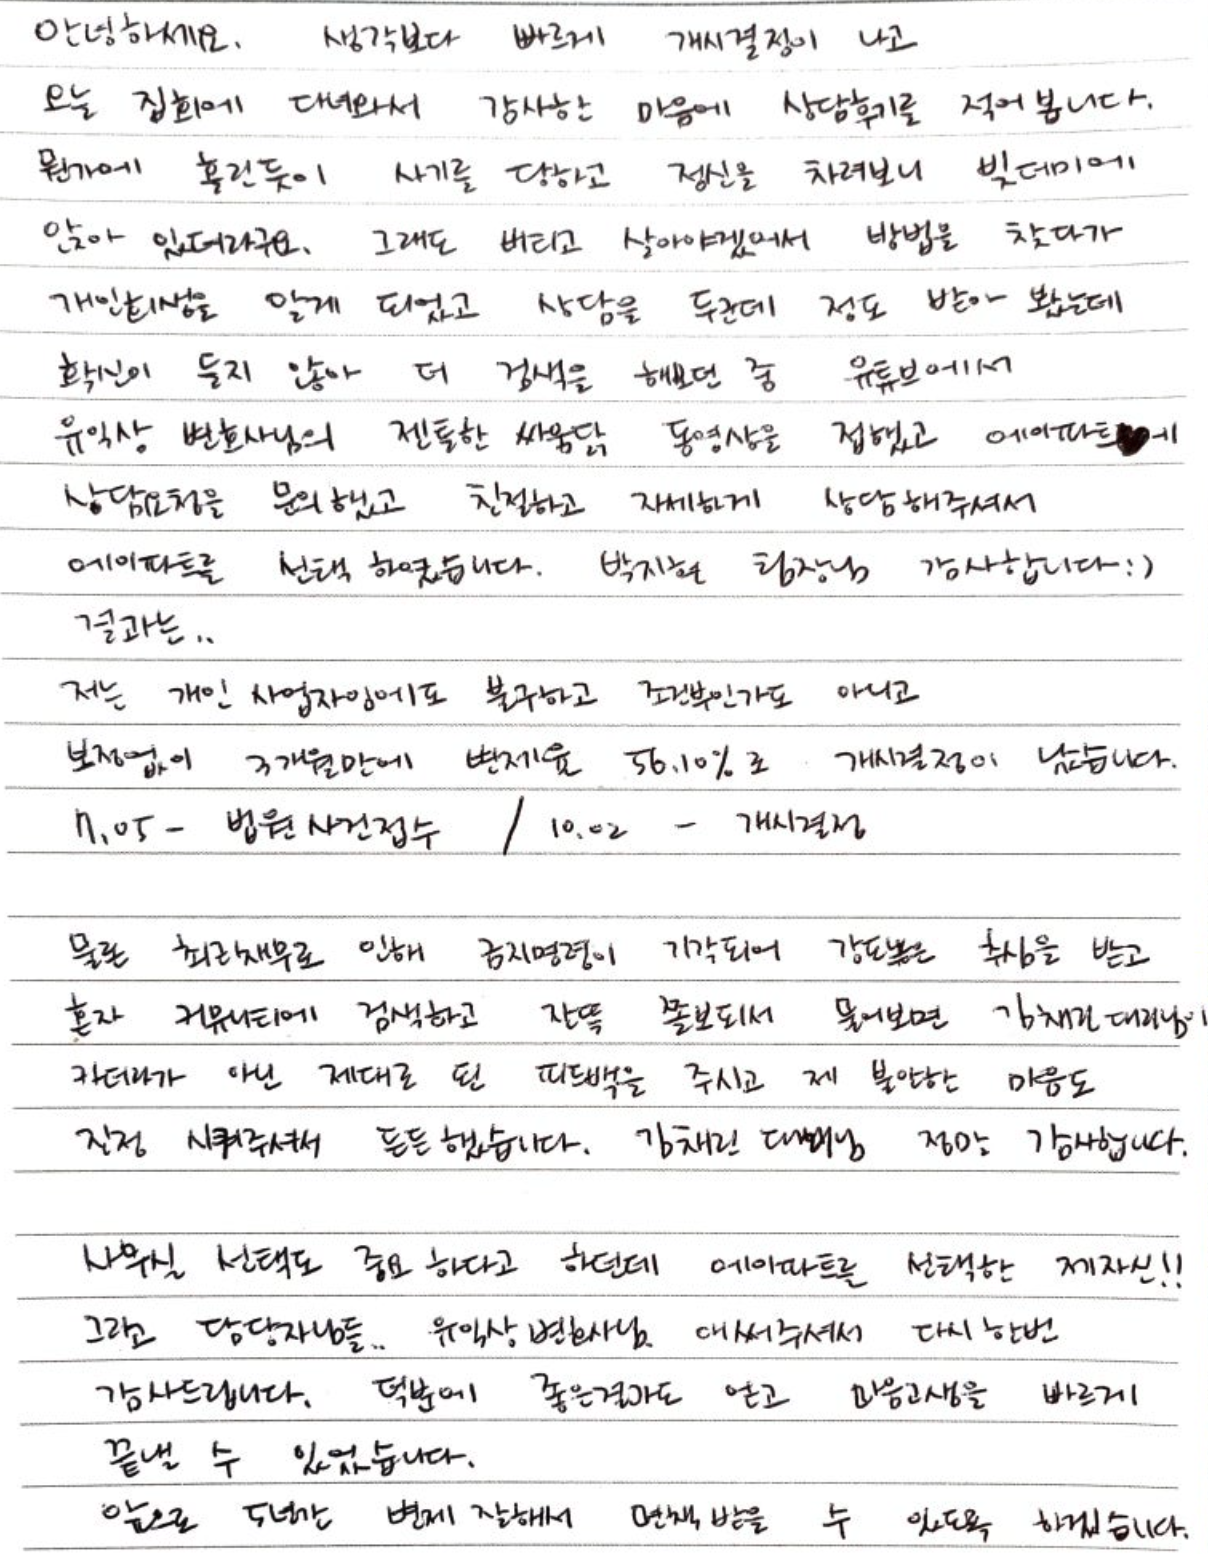 안녕하세요. 생각보다 빠르게 개시결정이 나고
오늘 집회에 다녀와서 감사한 마음에 상담후기를 적어 봅니다.
뭔가에 홀린듯이 사기를 당하고 정신을 차려보니 빚더미에
앉아 있더라구요. 그래도 버티고 살아야겠어서 방법을 찾다가
개인회생을 알게 되었고 상담을 두군데 정도 받아 봤는데
확신이 들지 않아 더 검색을 해보던 중 유튜브에서
유익상 변호사님의 젠틀한 싸움닭 동영상을 접했고 에이파트에
상담요청을 문의했고 친절하고 자세하게 상담해주셔서
에이파트를 선택 하였습니다. 박지현 팀장님 감사합니다:)
결과는..
저는 개인 사업자임에도 불구하고 조건부인가도 아니고
보정없이 3개월만에 변제율 56.10%로 개시결정이 났습니다.
7.05 - 법원 사건접수 / 10.02 - 개시결정
물론 최근채무로 인해 금지명령이 기각되어 강도높은 추심을 받고
혼자 커뮤니티에 검색하고 잔뜩 쫄보되서 물어보면 김채린 대리님이
카더라가 아닌 제대로 된 피드백을 주시고 제 불안한 마음도
진정 시켜주셔서 든든했습니다. 김채린 대리님 정말 감사합니다.
사무실 선택도 중요 하다고 하던데 에이파트를 선택한 제자신!!
그리고 담당자님들.. 유익상 변호사님 애써주셔서 다시 한번
감사드립니다. 덕분에 좋은결과도 얻고 마음고생을 빠르게
끝낼 수 있었습니다.
앞으로 5년간 변제 잘해서 면책 받을 수 있도록 하겠습니다.